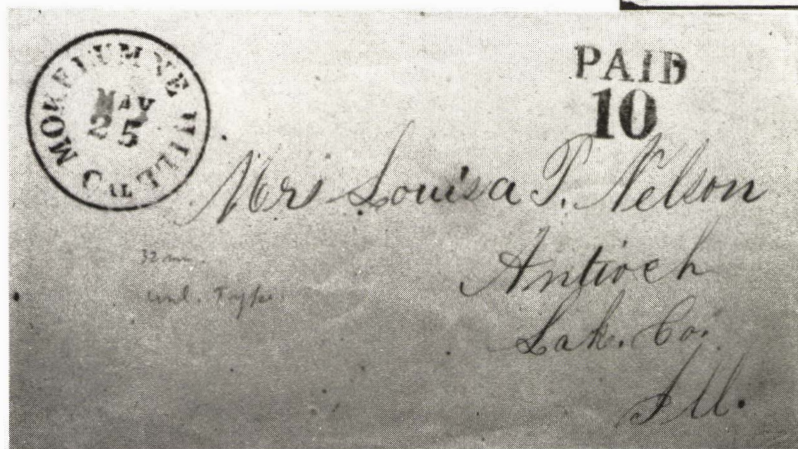 MOKELUMNE HILL CAL
MAY
25
PAID
10
Mrs Louisa P. Nelson
Antioch
Lak. Co.
Ill.
32 mm.